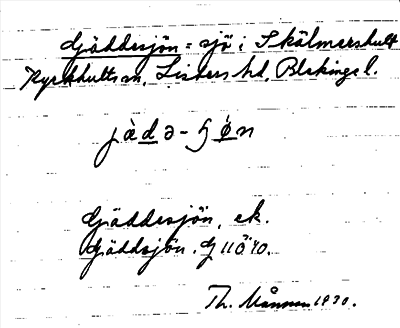 Gäddesjön = sjö i Skälmershult
Kyrkhults sn, Listers hd, Blekinge l.
jàdə-ɧøn
Gäddesjön, ek.
Gäddsjön. G 110 ö 40.
Th. 1930.